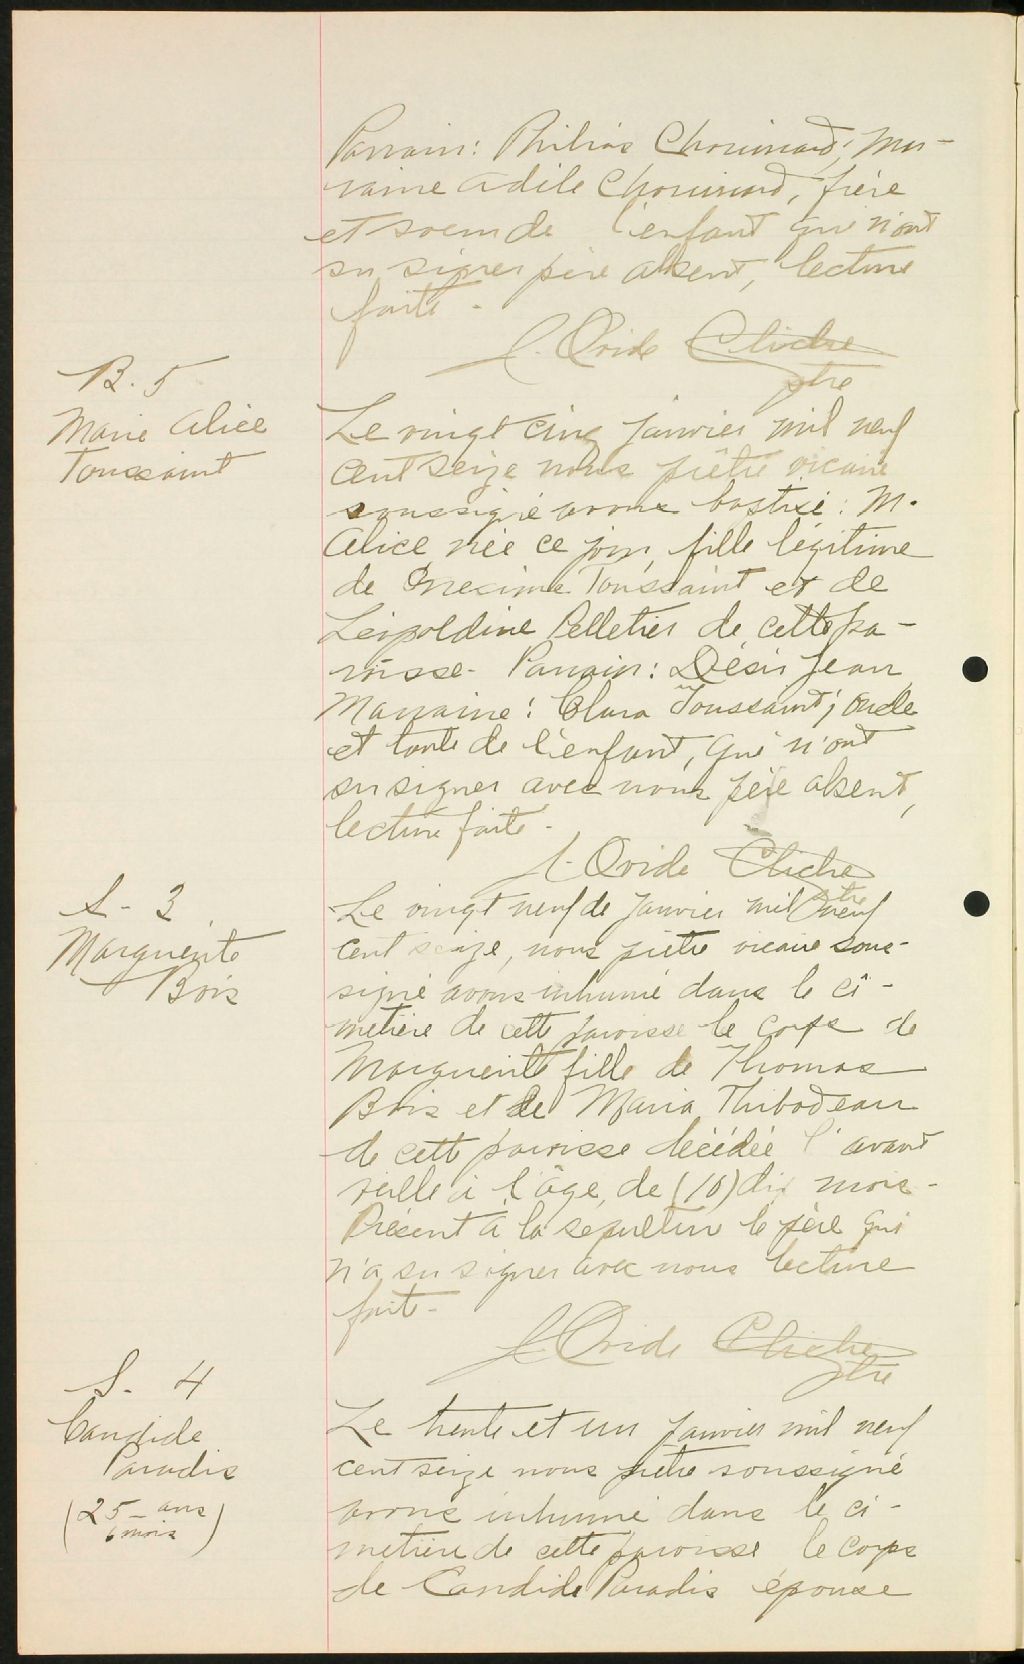 Parrain: Philias Chouinard; Mar-
raine Adile Chouinard, frère
et soeur de l'enfant qui n'ont
su signer père absent, lecture
faite -
J. Ovide Cliche
ptre
B. 5
Marie Alice
Toussaint
Le vingt cinq janvier mil neuf
cent seize nous prêtre vicaire
soussigné avons baptisé: M.
Alice née ce jour, fille légitime
de Onezime Toussaint et de
Léopoldine Pelletier de cette pa-
roisse - Parrain: Désir Jean
Marraine: Clara Toussaint; oncle
et tante de l'enfant, qui n'ont
su signer avec nous père absent,
lecture faite -
J. Ovide Cliche
ptre
S - 3
Marguerite
Bois
Le vingt neuf de janvier mil neuf
cent seize, nous prêtre vicaire sous-
signé avons inhumé dans le ci-
metière de cette paroisse le corps de
Marguerite fille de Thomas
Bois et de Maria Thibodeau
de cette paroisse décédée l'avant
veille à l'âge de (10) dix mois -
Présent à la sepulture le père qui
n'a su signer avec nous lecture
faite -
J. Ovide Cliche
ptre
S - 4
Candide
Paradis
(25 - ans
6 mois)
Le trente et un janvier mil neuf
cent seize nous prêtre soussigné
avons inhumé dans le ci-
metière de cette paroisse le corps
de Candide Paradis épouse